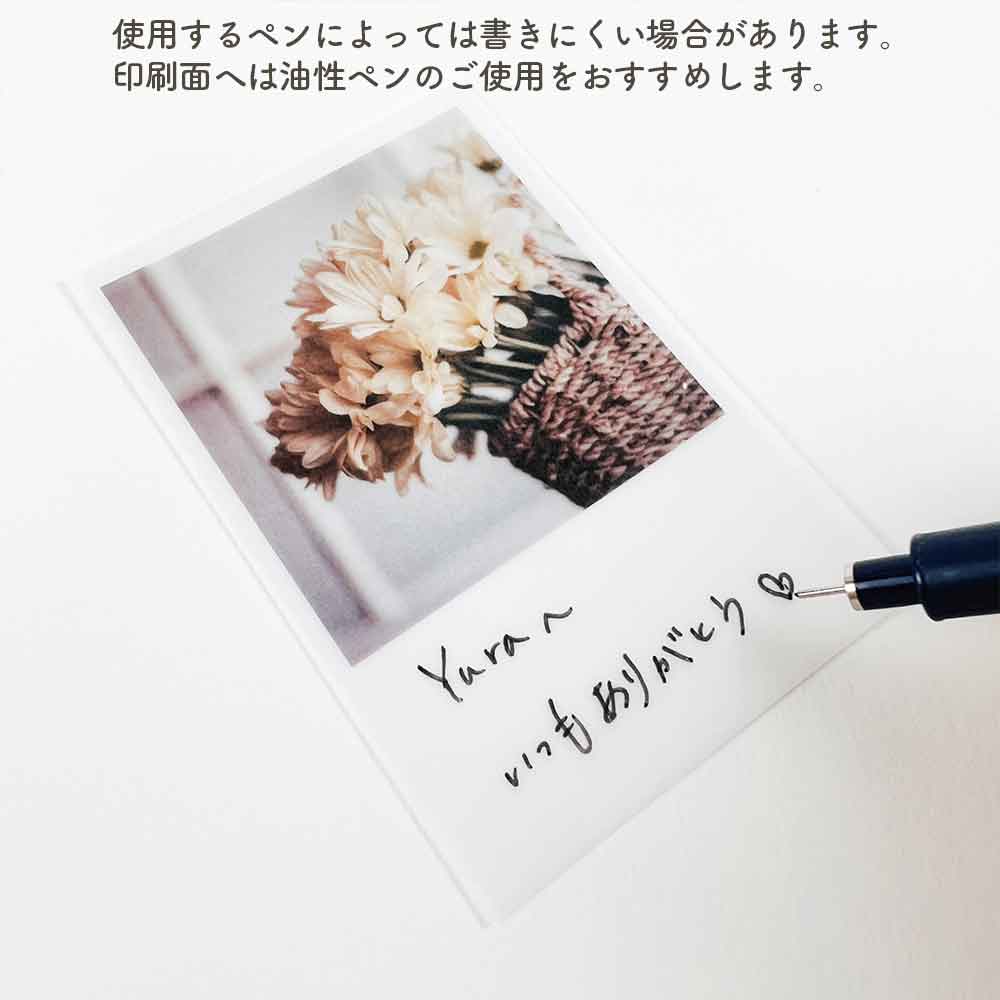 使用するペンによっては書きにくい場合があります。
印刷面へは油性ペンのご使用をおすすめします。
Yuraへ
いつもありがとう♡